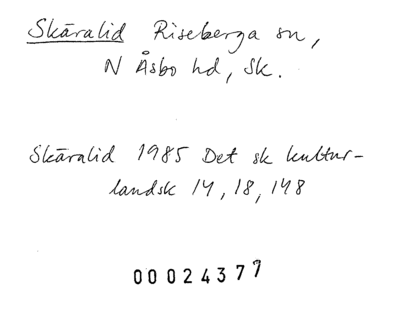 Skäralid Riseberga sn,
N Åsbo hd, Sk.
Skäralid 1985 Det sk kultur-
landsk 14, 18, 148
00024377